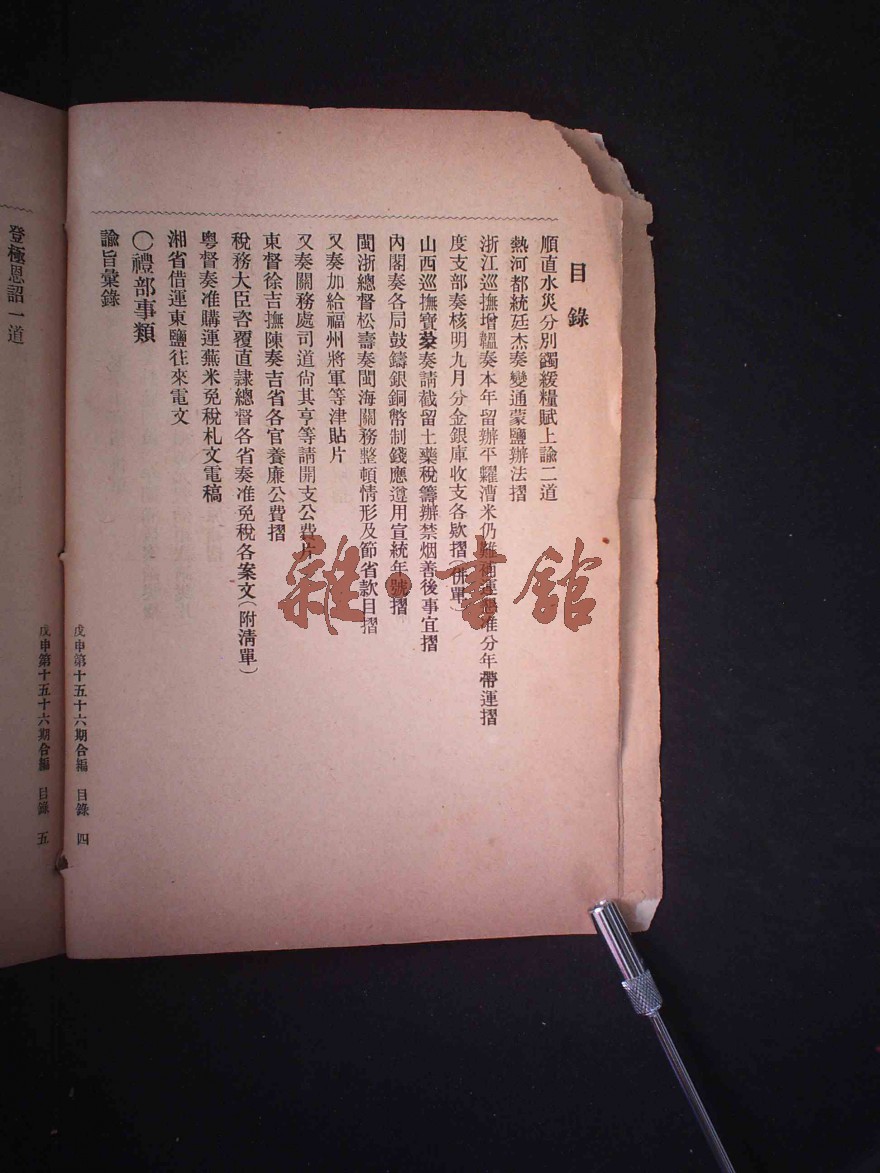 目錄
順直水災分別蠲緩糧賦上諭二道
熱河都統廷杰奏變通蒙鹽辦法摺
浙江巡撫增韞奏本年留辦平糶漕米仍難補運懇准分年帶運摺
度支部奏核明九月分金銀庫收支各欵摺(倂單)
山西巡撫寶棻奏請截留土藥稅籌辦禁烟善後事宜摺
內閣奏各局鼓鑄銀銅幣制錢應遵用宣統年號摺
閩浙總督松壽奏閩海關務整頓情形及節省款目摺
又奏加給福州將軍等津貼片
又奏關務處司道尙其亨等請開支公費片
東督徐吉撫陳奏吉省各官養廉公費摺
稅務大臣咨覆直隸總督各省奏准免稅各案文(附清單)
粵督奏准購運蕪米免稅札文電稿
湘省借運東鹽往來電文
〇禮部事類
諭旨彙錄
戊申第十五十六期合編 目錄 四
登極恩詔一道
戊申第十五十六期合編 目錄 五
雜·書館